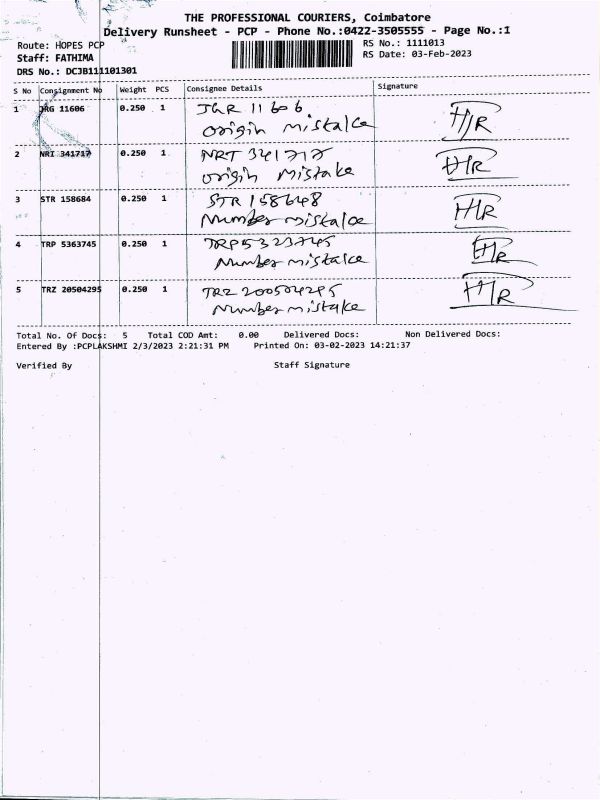 THE PROFESSIONAL COURIERS, Coimbatore
Delivery Runsheet - PCP - Phone No.:0422-3505555 - Page No.:1
Route: HOPES PCP RS No.: 1111013
Staff: FATHIMA RS Date: 03-Feb-2023
DRS No.: DCJB111101301
S No Consignment No Weight PCS Consignee Details Signature
1 JRG 11606 0.250 1 JGR 11606
origin mistake H/R
2 NRI 341717 0.250 1 NRT 341717
origin mistake H/R
3 STR 158684 0.250 1 STR 158648
Number mistake H/R
4 TRP 5363745 0.250 1 TRP 5323745
Number mistake H/R
5 TRZ 20504295 0.250 1 TRZ 200504295
Number mistake H/R
Total No. Of Docs: 5 Total COD Amt: 0.00 Delivered Docs: Non Delivered Docs:
Entered By :PCPLAKSHMI 2/3/2023 2:21:31 PM Printed On: 03-02-2023 14:21:37
Verified By Staff Signature